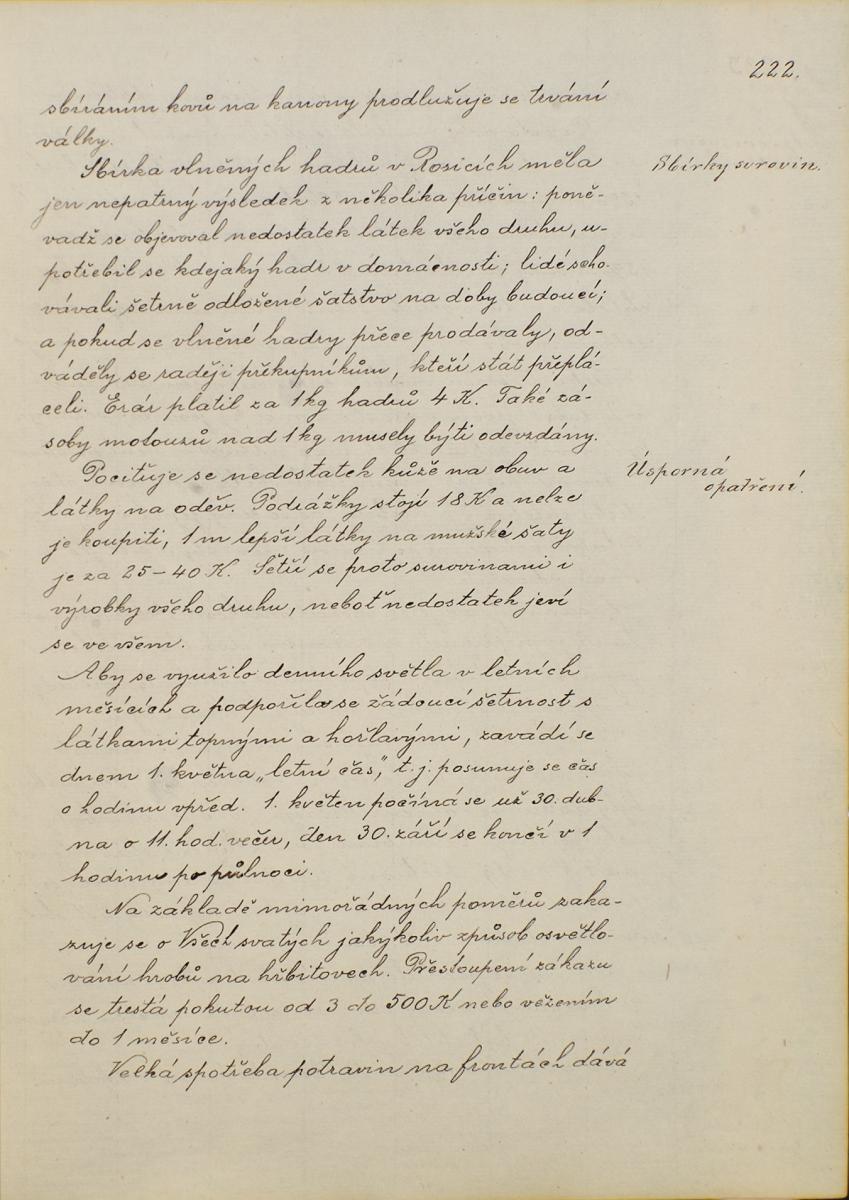 222.
sbíráním kovů na kanony prodlužuje se trvání
války.
Sbírka vlněných hadrů v Rosicích měla
Sbírky surovin.
jen nepatrný výsledek z několika příčin: poně-
vadž se objevoval nedostatek látek všeho druhu, u-
potřebil se kdejaký hadr v domácnosti; lidé scho-
vávali šetrně odložené šatstvo na doby budoucí;
a pokud se vlněné hadry přece prodávaly, od-
váděly se raději překupníkům, kteří stát přeplá-
celi. Erár platil za 1 kg hadrů 4 K. Také zá-
soby motouzů nad 1 kg musely býti odevzdány.
Pociťuje se nedostatek kůže na obuv a
Úsporná
opatření.
látky na oděv. Podrážky stojí 18 K a nelze
je koupiti, 1 m lepší látky na mužské šaty
je za 25 – 40 K. Šetří se proto surovinami i
výrobky všeho druhu, neboť nedostatek jeví
se ve všem.
Aby se využilo denního světla v letních
měsících a podpořila se žádoucí šetrnost s
látkami topnými a hořlavými, zavádí se
dnem 1. května „letní čas", t. j. posunuje se čas
o hodinu vpřed. 1. květen počíná se už 30. dub-
na o 11. hod. večer, den 30. září se končí v 1
hodinu po půlnoci.
Na základě mimořádných poměrů zaka-
zuje se o Všech svatých jakýkoliv způsob osvětlo-
vání hrobů na hřbitovech. Přestoupení zákazu
se trestá pokutou od 3 do 500 K nebo vězením
do 1 měsíce.
Velká spotřeba potravin na frontách dává